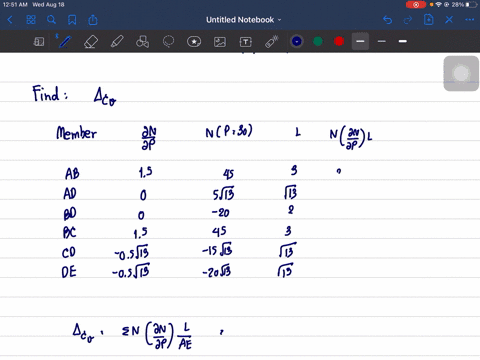 12:51 AM Wed Aug 18
28%
Untitled Notebook
Find: Δ_Cv
Member ∂N/∂P N(P=30) L N(∂N/∂P)L
AB 1.5 45 3
AD 0 5√13 √13
BD 0 -20 2
BC 1.5 45 3
CD -0.5√13 -15√13 √13
DE -0.5√13 -20√13 √13
Δ_Cv = ΣN(∂N/∂P) L/AE =